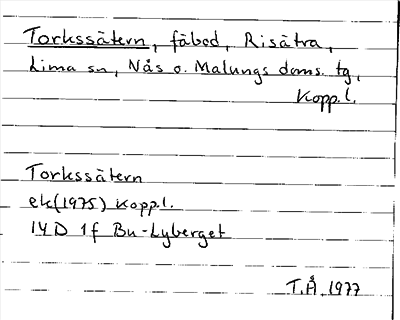 Torkssätern, fäbod, Risätra,
Lima sn, Nås o. Malungs doms. tg,
Kopp.l.
Torkssätern
ek(1975) Kopp.l.
14D 1f Bu-Lyberget
T.Å. 1977